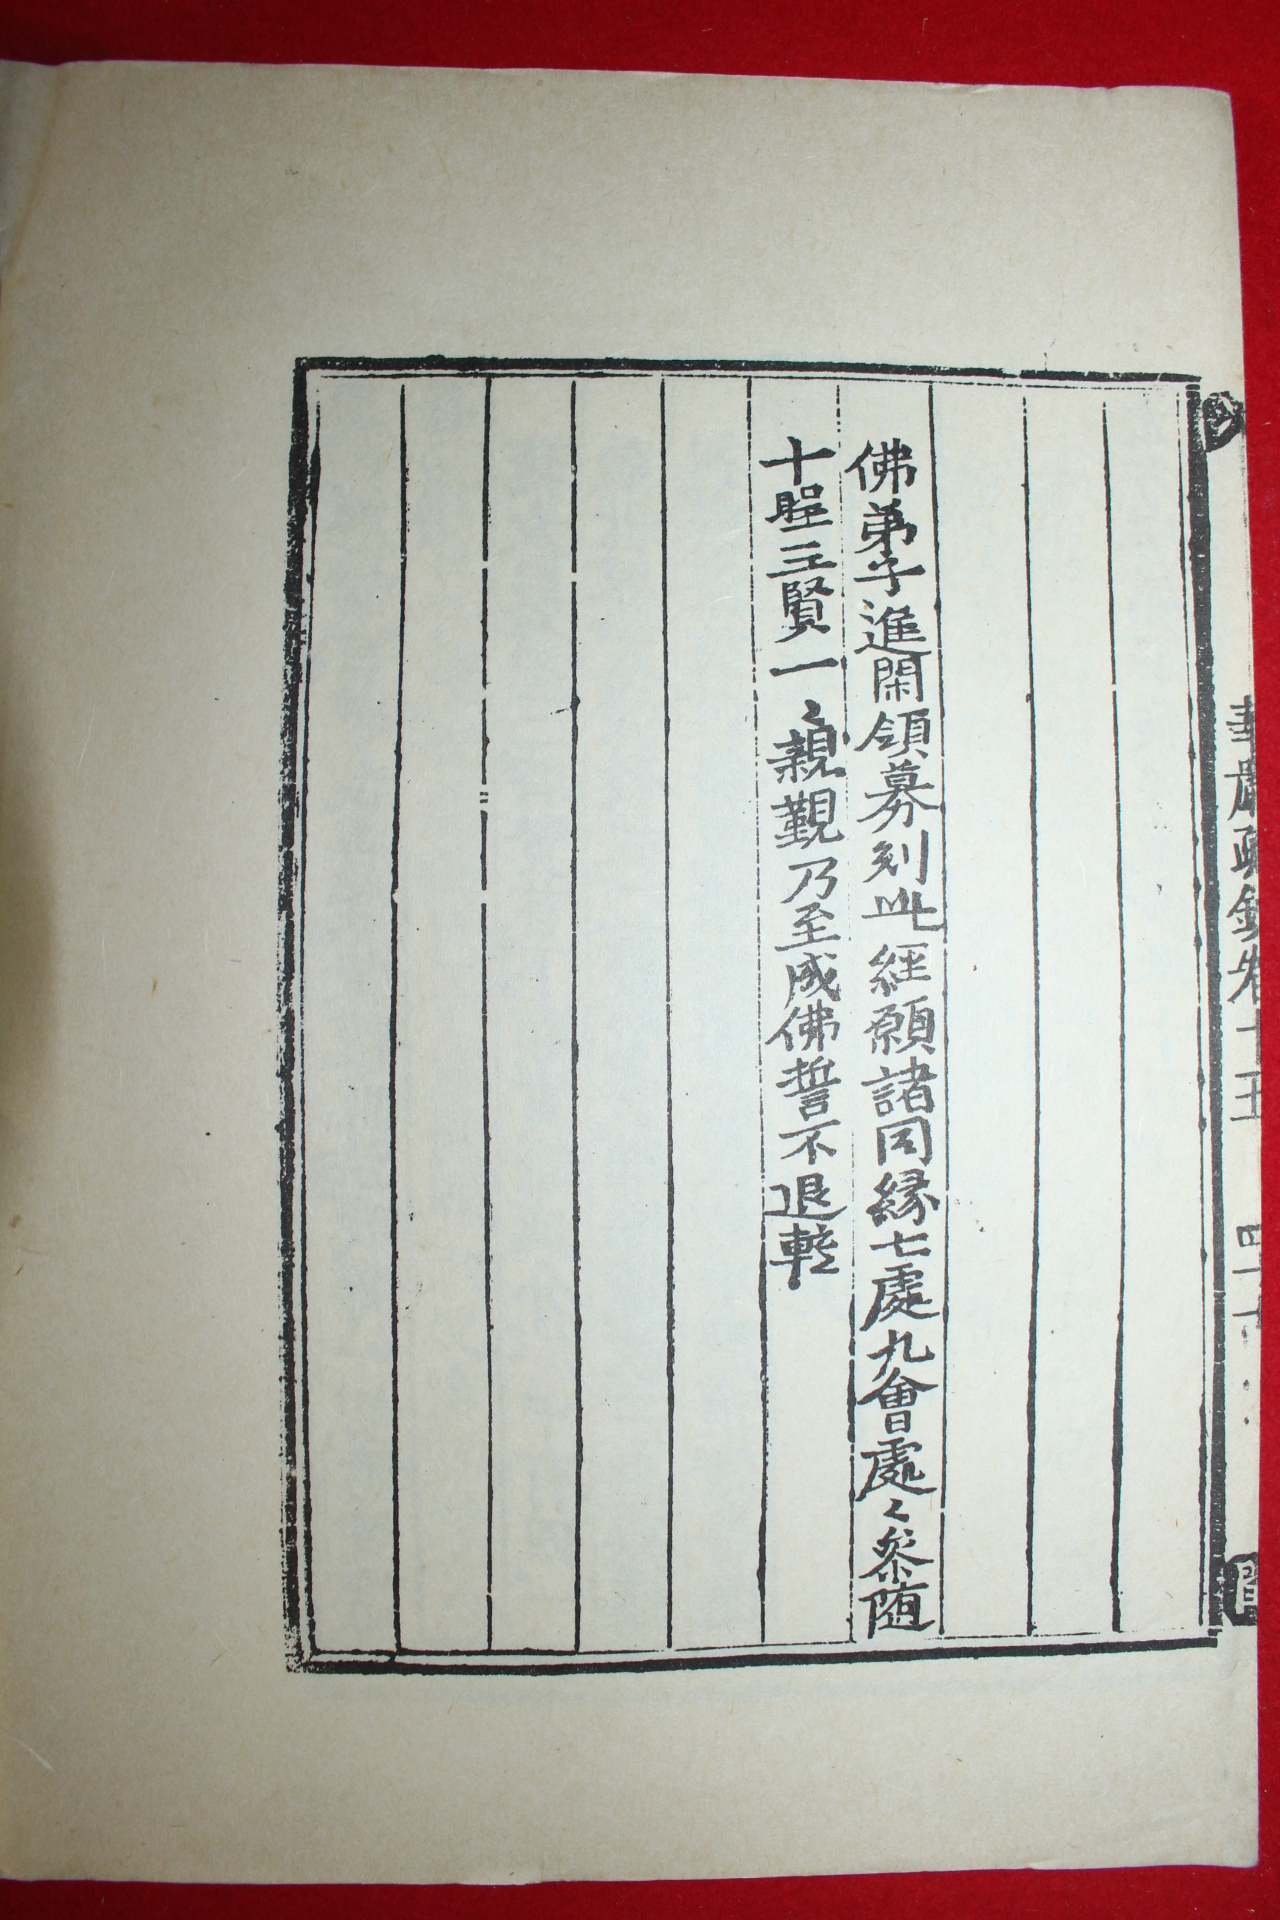 佛弟子進閑領募刻此經願諸同緣七處九會處〻叅随
十聖三賢一〻親覲乃至成佛誓不退轉
華嚴疏鈔卷十五